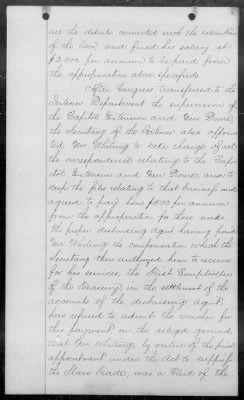 all the details connected with the execution
of the law, and fixed his salary at
$2,000 per annum to be paid from
the appropriation above specified.
After Congress transferred to the
Interior Department the supervision of
the Capitol Extension and New Dome,
the Secretary of the Interior also appoin-
ted Mr Whiting to take charge of all
the correspondence relating to the Capi-
tol Extension and New Dome, and to
keep the files relating to that business and
agreed to pay him $1000 per annum
from the appropriation for these works.
The proper disbursing agent having paid
Mr Whiting the compensation which the
Secretary thus authorized him to receive
for his services, the First Comptroller
of the Treasury, in the settlement of the
accounts of the disbursing agent,
has refused to admit the voucher for
this payment, on the alleged ground,
that Mr Whiting, by virtue of the prior
appointment, under the Act to suppress
the Slave Trade, was a Clerk of the